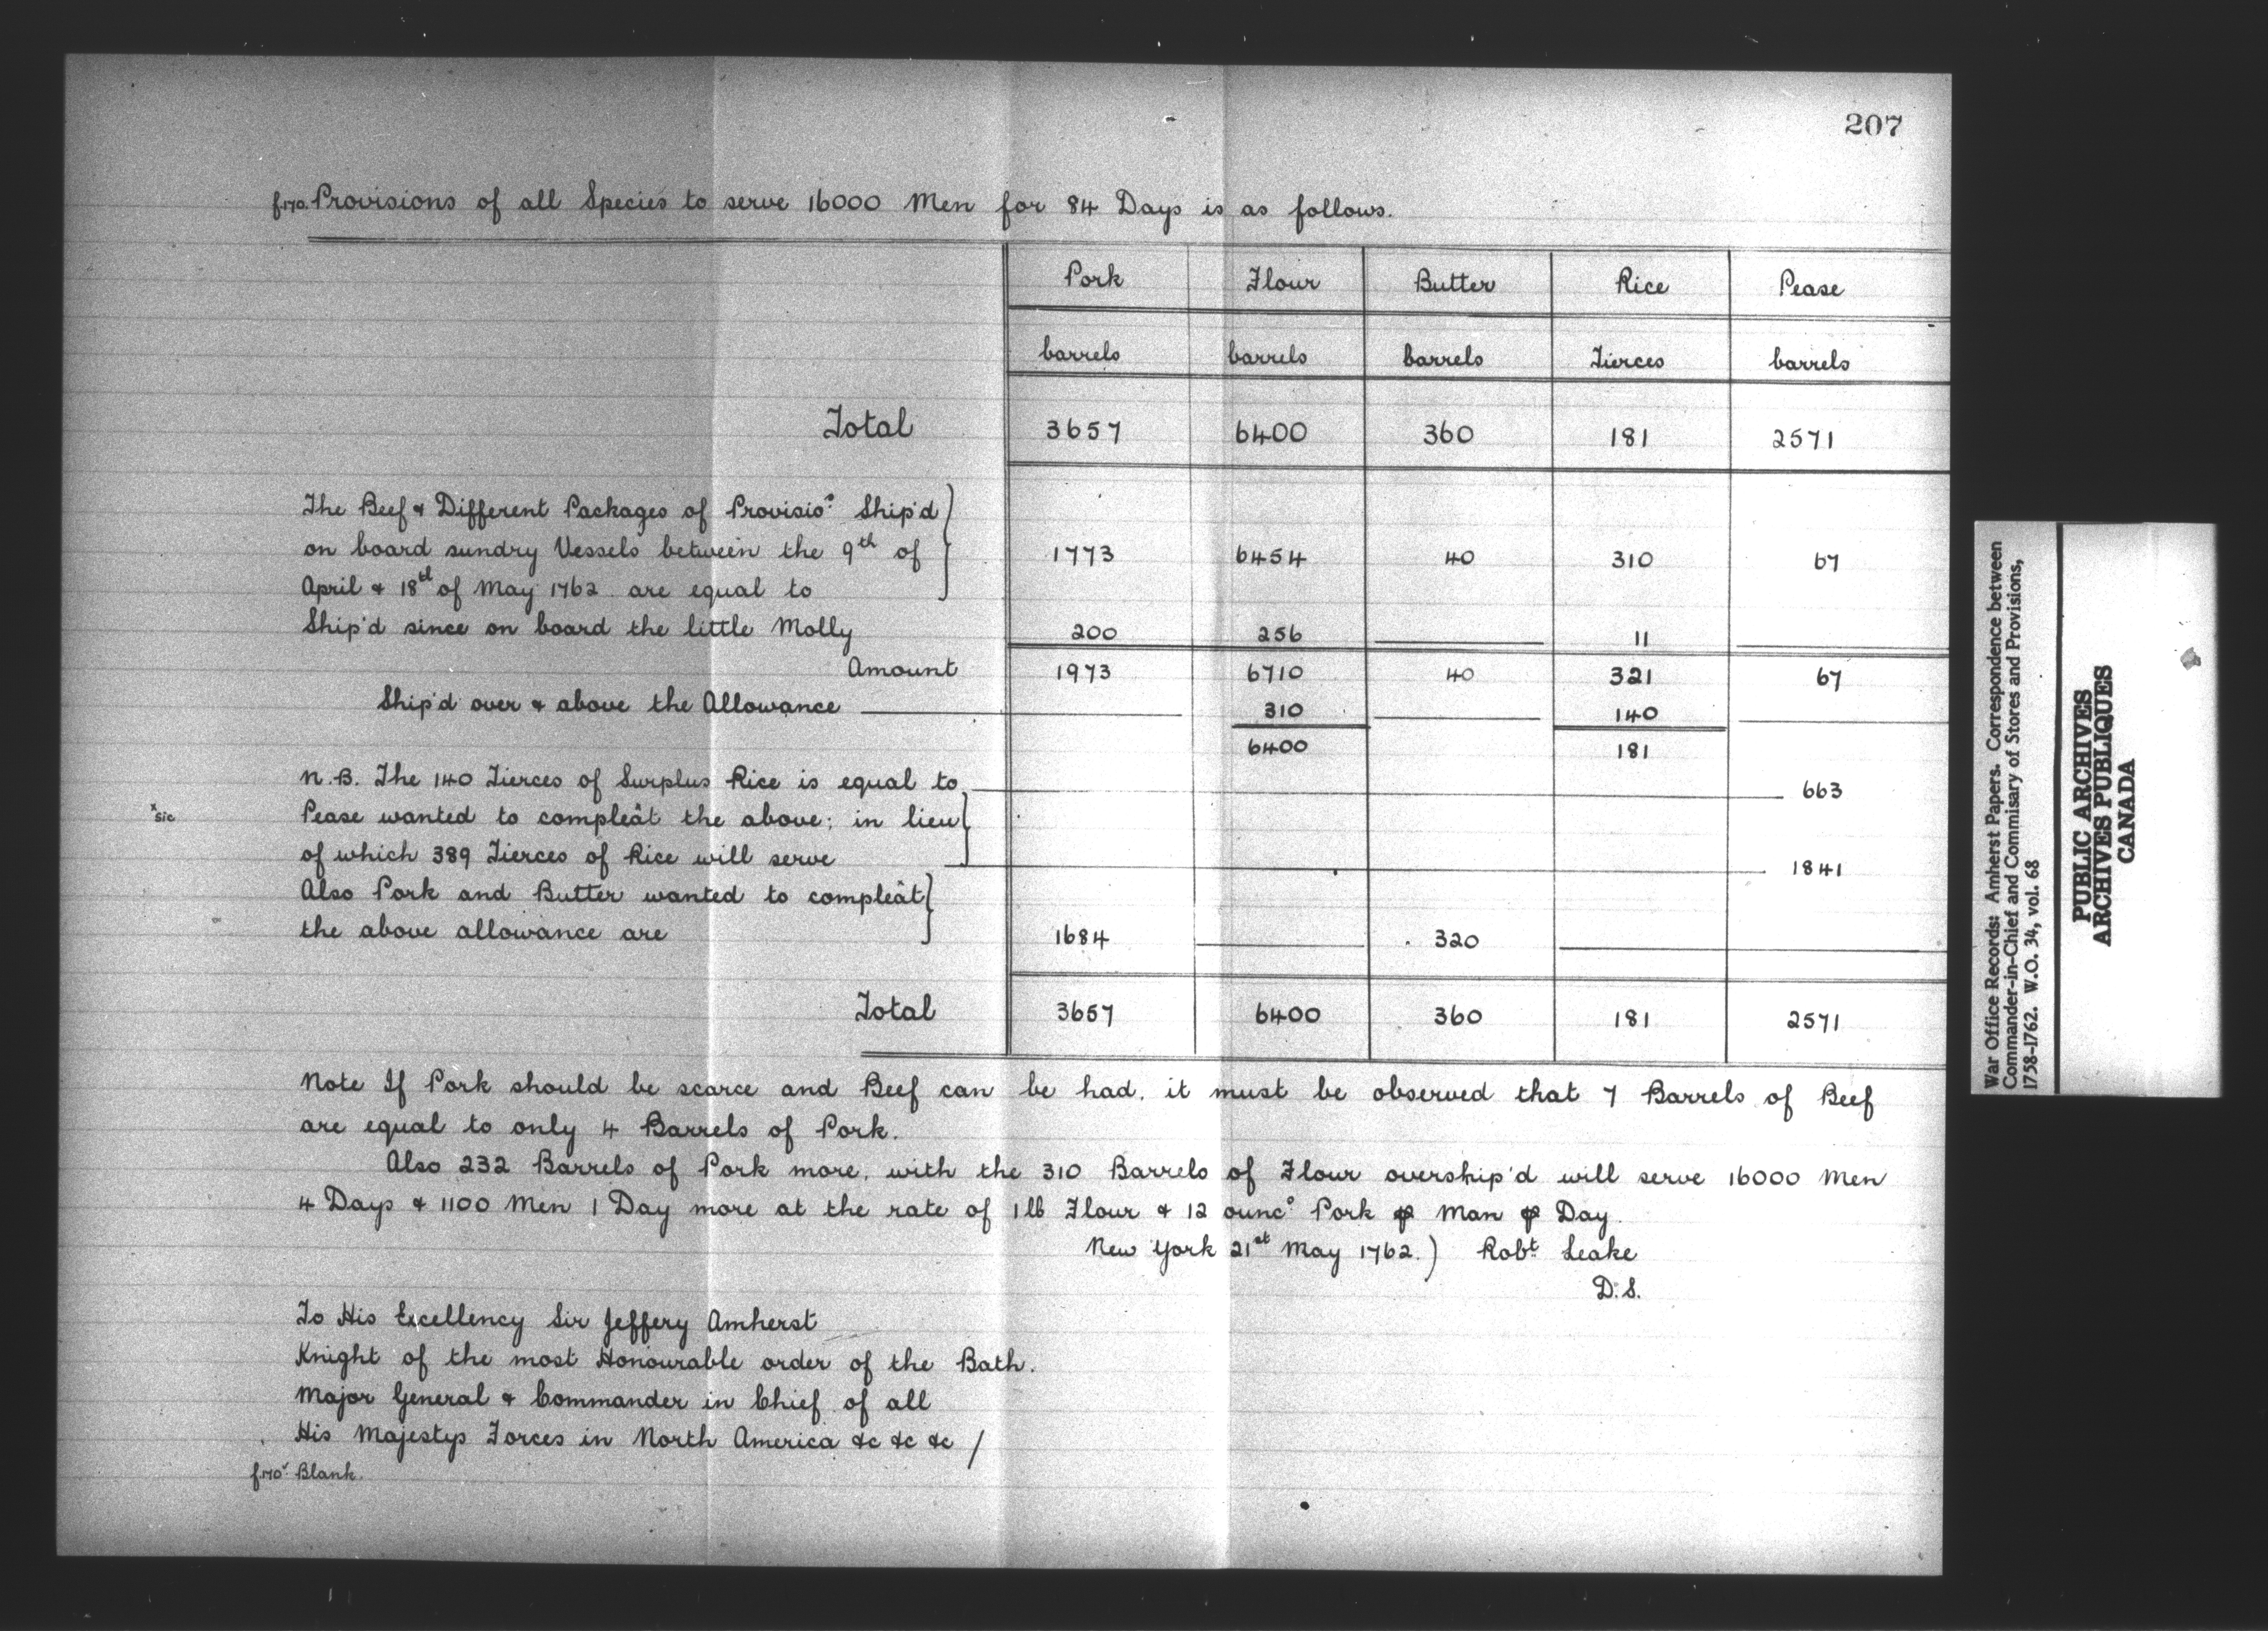 207
f.170. Provisions of all Species to serve 16000 Men for 84 Days is as follows.
Pork Flour Butter Rice Pease
barrels barrels barrels Tierces barrels
Total 3657 6400 360 181 2571
The Beef & Different Packages of Provisio.s Ship'd
on board sundry Vessels between the 9th of 1773 6454 40 310 67
April & 18th of May 1762 are equal to
Ship'd since on board the little Molly 200 256 11
Amount 1973 6710 40 321 67
Ship'd over & above the Allowance 310 140
6400 181
N.B. The 140 Tierces of Surplus Rice is equal to 663
x sic Pease wanted to compleât the above; in lieu
of which 389 Tierces of Rice will serve 1841
Also Pork and Butter wanted to compleât
the above allowance are 1684 320
Total 3657 6400 360 181 2571
Note If Pork should be scarce and Beef can be had, it must be observed that 7 Barrels of Beef
are equal to only 4 Barrels of Pork.
Also 232 Barrels of Pork more, with the 310 Barrels of Flour overship'd will serve 16000 Men
4 Days & 1100 Men 1 Day more at the rate of 1 lb Flour & 12 ounc.s Pork ⅌ Man ⅌ Day.
New York 21st May 1762.) Robt Leake
D.S.
To His Excellency Sir Jeffery Amherst
Knight of the most Honourable order of the Bath.
Major General & Commander in Chief of all
His Majestys Forces in North America &c &c &c /
f.170v Blank.
War Office Records: Amherst Papers. Correspondence between
Commander-in-Chief and Commisary of Stores and Provisions,
1758-1762. W.O. 34, vol. 68
PUBLIC ARCHIVES
ARCHIVES PUBLIQUES
CANADA